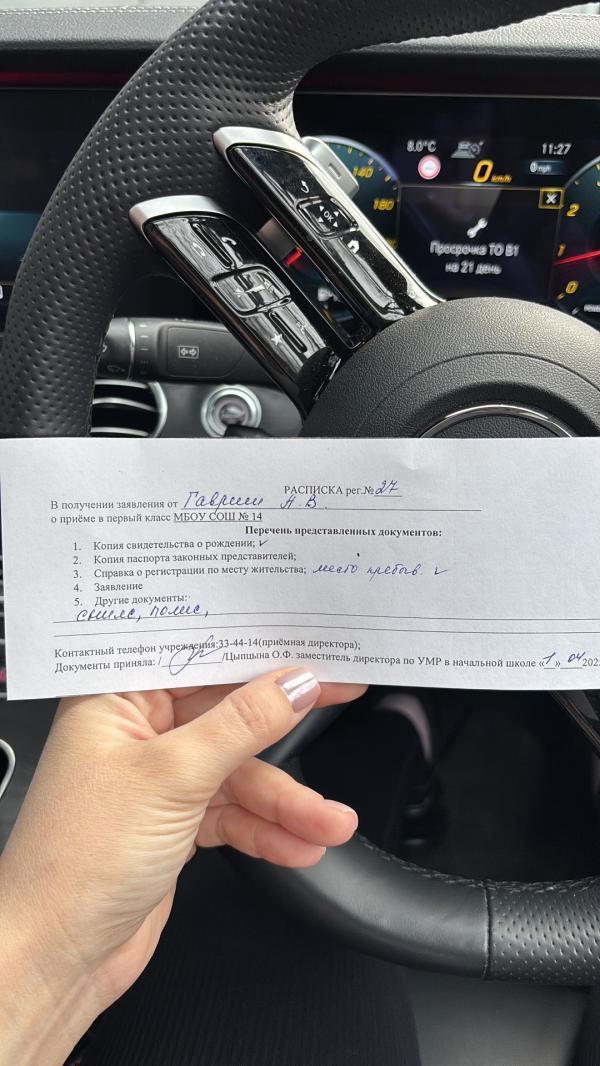 140
160
8.0°C
0
km/h
11:27
0 mph
2
1
0
OK
Просрочка ТО B1
на 21 день
РАСПИСКА рег.№ 27
В получении заявления от Гавриш А.В.
о приёме в первый класс МБОУ СОШ № 14
Перечень представленных документов:
1. Копия свидетельства о рождении; ✓
2. Копия паспорта законных представителей;
3. Справка о регистрации по месту жительства; место пребыв. ✓
4. Заявление
5. Другие документы:
снилс, полис,
Контактный телефон учреждения:33-44-14(приёмная директора);
Документы приняла: / /Цыпцына О.Ф. заместитель директора по УМР в начальной школе «1» 04 202